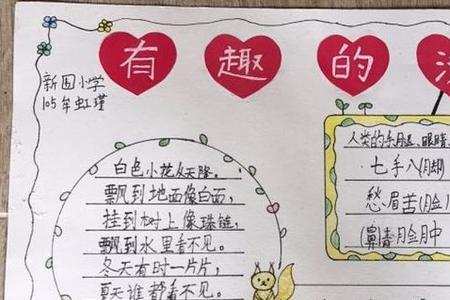 有趣的汉
新园小学
105年虹瑾
白色小花从天降。
飘到地面像白面,
挂到树上像珠链,
飘到水里看不见。
冬天有时一片片,
夏天谁都看不见。
人类的手脚、眼睛、
七手八(脚)
愁眉苦(脸)
(鼻)青脸肿